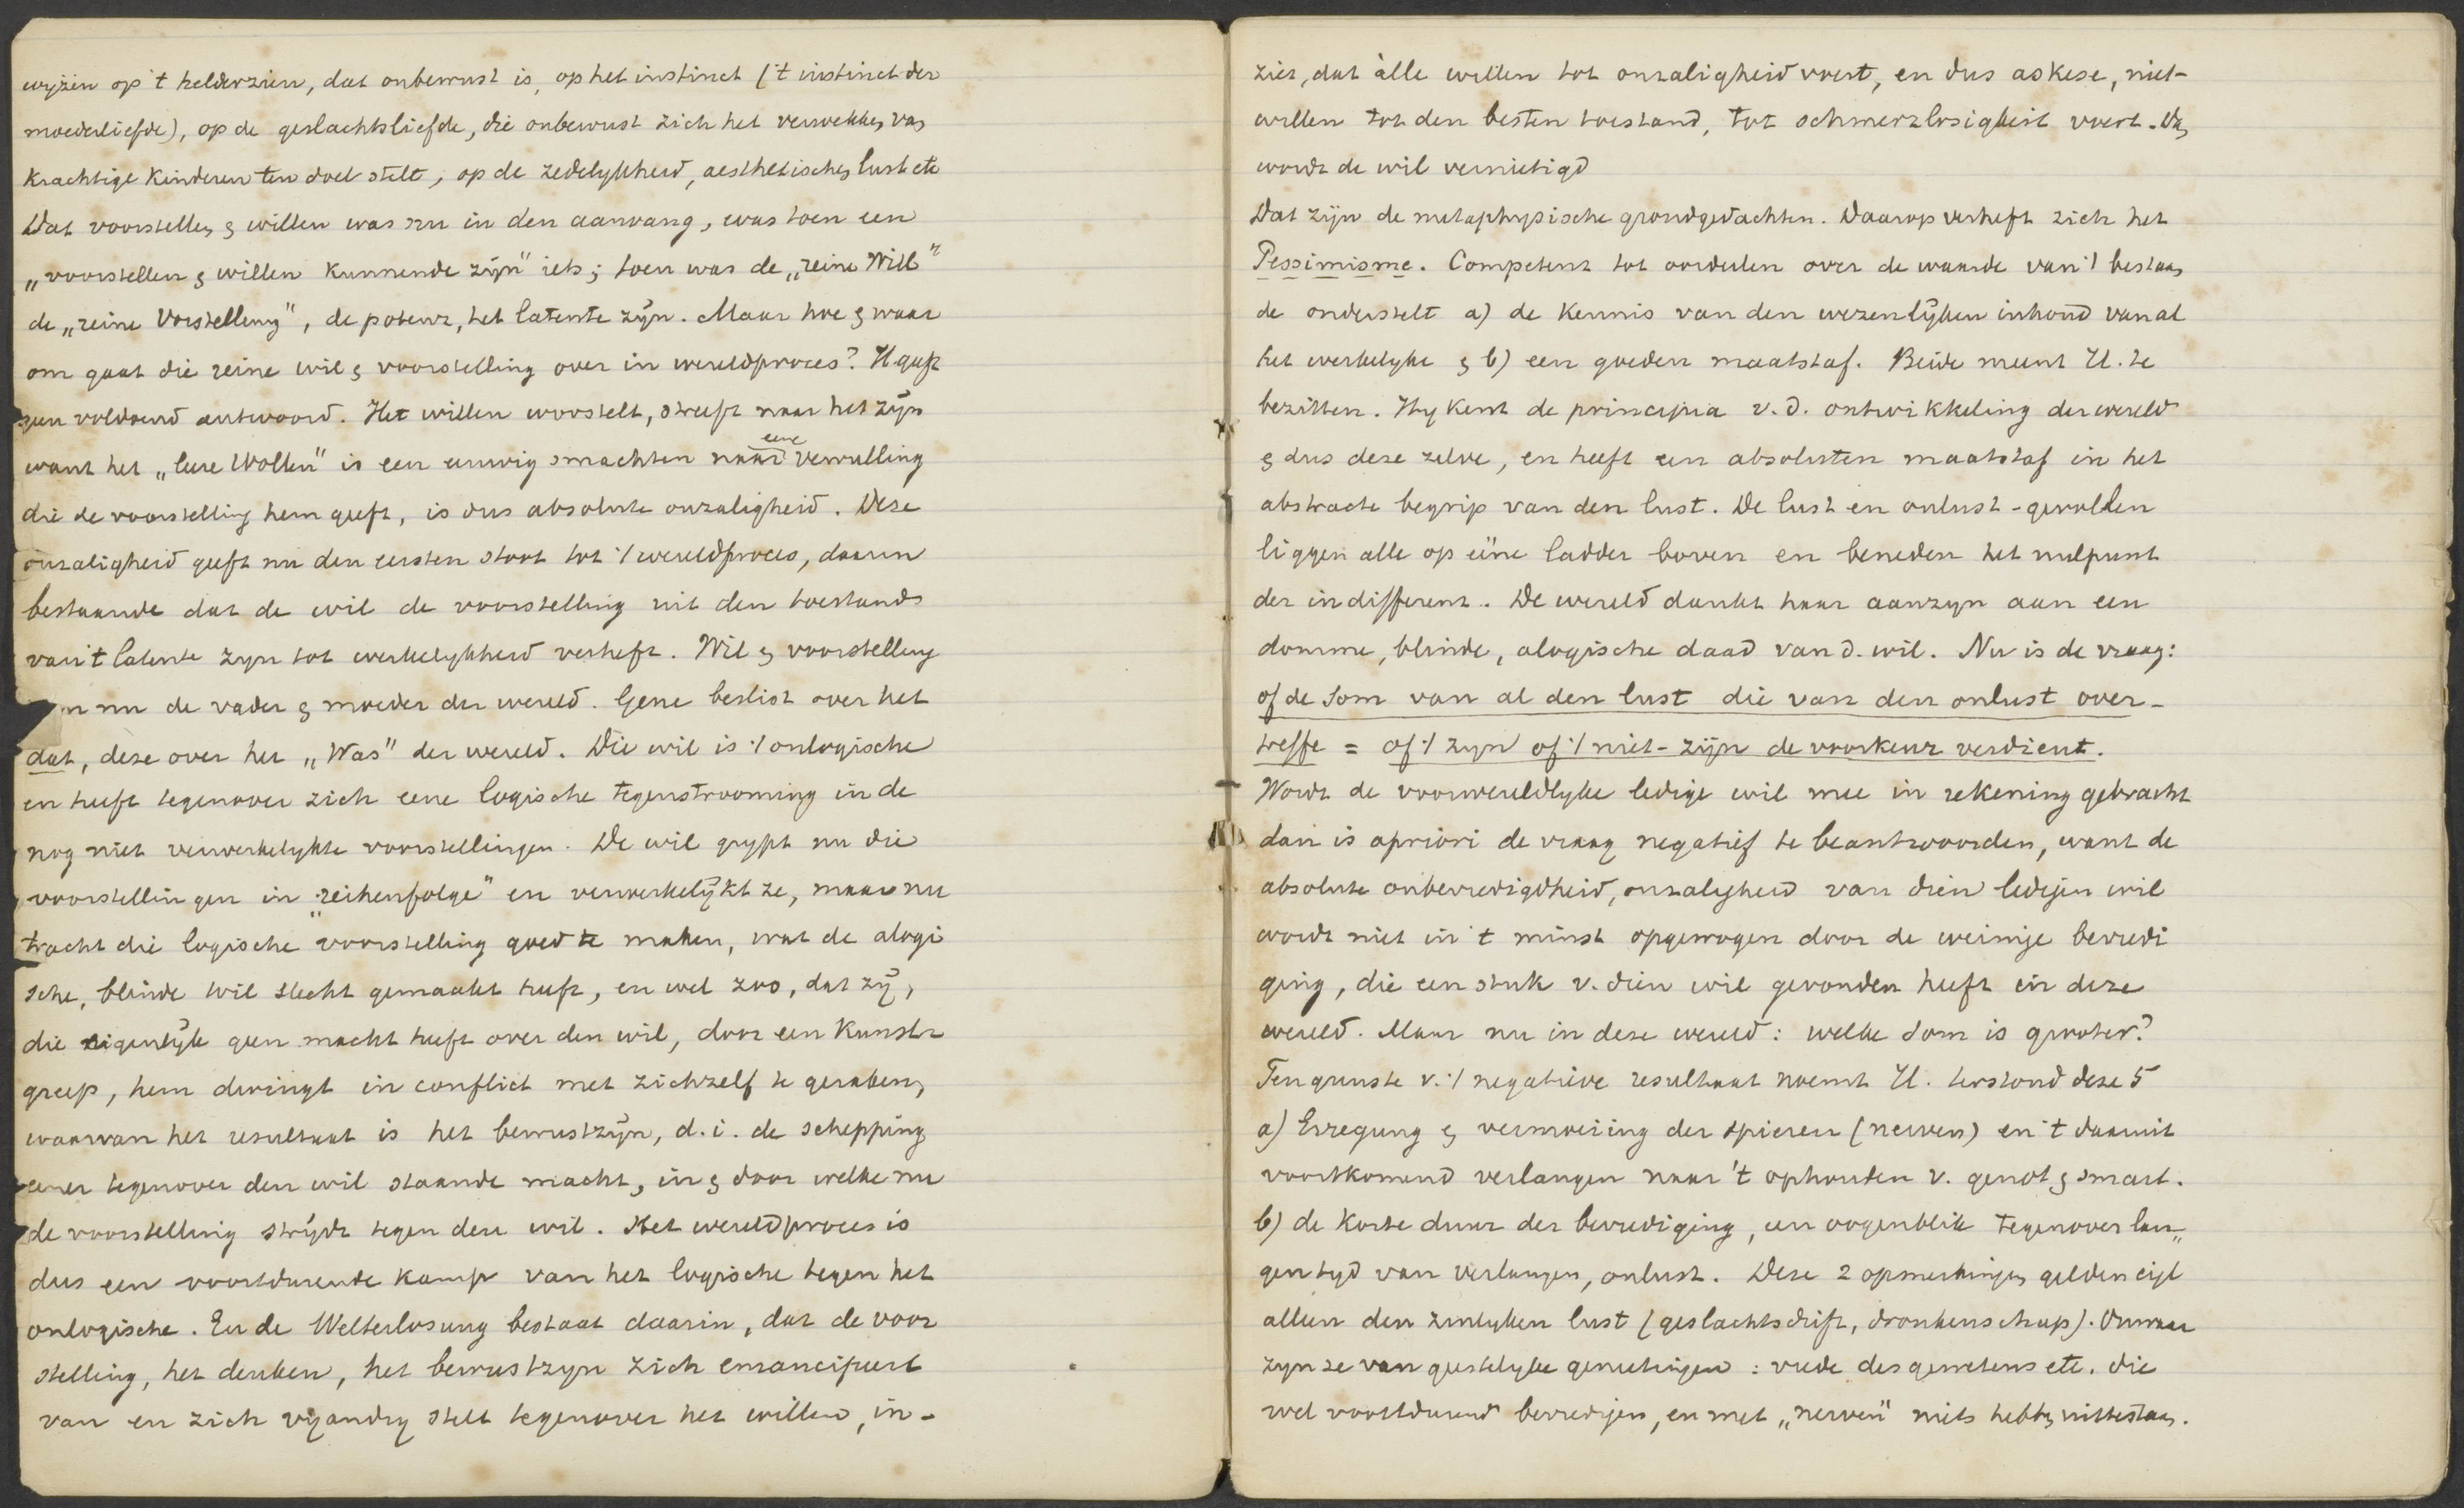 wijzen op 't helderzien, dat onbewust is, op het instinct ('t instinct der
moederliefde), op de geslachtsliefde, die onbewust zich het verwekken van
krachtige kinderen ten doel stelt, op de zedelykheid, aesthetischen lust etc
Wat voorstellen & willen was nu in den aanvang, was toen een
„voorstellen & willen kunnende zijn" iets; toen was de „reine Will"
de „reine Vorstellung", de potenz, het latente zijn. Maar hoe & waar
om gaat die reine wil & voorstelling over in wereldproces? H geeft
geen voldoend antwoord. Het willen worstelt, streeft naar het zijn
want het „leere Wollen" is een eeuwig smachten naar eene vervulling
die de voorstelling hem geeft, is dus absolute onzaligheid. Deze
onzaligheid geeft nu den eersten stoot tot 't wereldproces, daarin
bestaande dat de wil de voorstelling uit den toestand
van 't latente zyn tot werkelykheid verheft. Wil & voorstelling
zyn nu de vader & moeder der wereld. Gene beslist over het
dat, deze over het „Was" der wereld. Die wil is 't onlogische
en heeft tegenover zich eene logische tegenstrooming in de
nog niet verwerkelykte voorstellingen. De wil grypt nu die
voorstellingen in „reihenfolge" en verwerkelijkt ze, maar nu
tracht die logische voorstelling goed te maken, wat de alogi
sche, blinde wil slecht gemaakt heeft, en wel zoo, dat zij,
die eigenlijk geen macht heeft over den wil, door een kunst-
greep, hem dwingt in conflict met zichzelf te geraken,
waarvan het resultaat is het bewustzijn, d.i. de schepping
eener tegenover den wil staande macht, in & door welke nu
de voorstelling strijdt tegen den wil. Het wereldproces is
dus een voortdurende kamp van het logische tegen het
onlogische. En de Welterlosung bestaat daarin, dat de voor
stelling, het denken, het bewustzyn zich emancipeert
van en zich vyandig stelt tegenover het willen, in-
ziet, dat àlle willen tot onzaligheid voert, en dus askese, niet-
willen tot den besten toestand, tot schmerzlosigkeit voert. Dan
wordt de wil vernietigd
Dat zijn de metaphysische grondgedachten. Daarop verheft zich het
Pessimisme. Competent tot oordeelen over de waarde van 't bestaan
de onderstelt a) de kennis van den wezenlijken inhoud van al
het werkelyke & b) een goeden maatstaf. Beide meent H. te
bezitten. Hy kent de principia v. d. ontwikkeling der wereld
& dus deze zelve, en heeft een absoluten maatstaf in het
abstracte begrip van den lust. De lust en onlust-gevallen
liggen alle op eéne ladder boven en beneden het nulpunt
der indifferent. De wereld dankt haar aanzyn aan een
domme, blinde, alogische daad van d. wil. Nu is de vraag:
of de som van al den lust die van den onlust over-
treffe = of 't zyn of 't niet-zijn de voorkeur verdient.
Wordt de voorwereldlyke ledige wil mee in rekening gebracht
dan is apriori de vraag negatief te beantwoorden, want de
absolute onbevredigdheid, onzaligheid van dien ledigen wil
wordt niet in 't minst opgewogen door de weinige bevredi
ging, die een stuk v. dien wil gevonden heeft in deze
wereld. Maar nu in deze wereld: welke som is grooter?
Ten gunste v. 't negatieve resultaat noemt H. terstond deze 5
a) Erregung & vermoeiing der spieren (nerven) en 't daaruit
voortkomend verlangen naar 't ophouden v. genot & smart.
b) de korte duur der bevrediging, een oogenblik tegenover lan„
gen tyd van verlangen, onlust. Deze 2 opmerkingen gelden eigl
alleen den zinlyken lust (geslachtsdrift, dronkenschap). Onwaar
zyn ze van geestelyke genietingen: vrede des gewetens etc. die
wel voortdurend bevredigen, en met „nerven" niets hebben uittestaan.